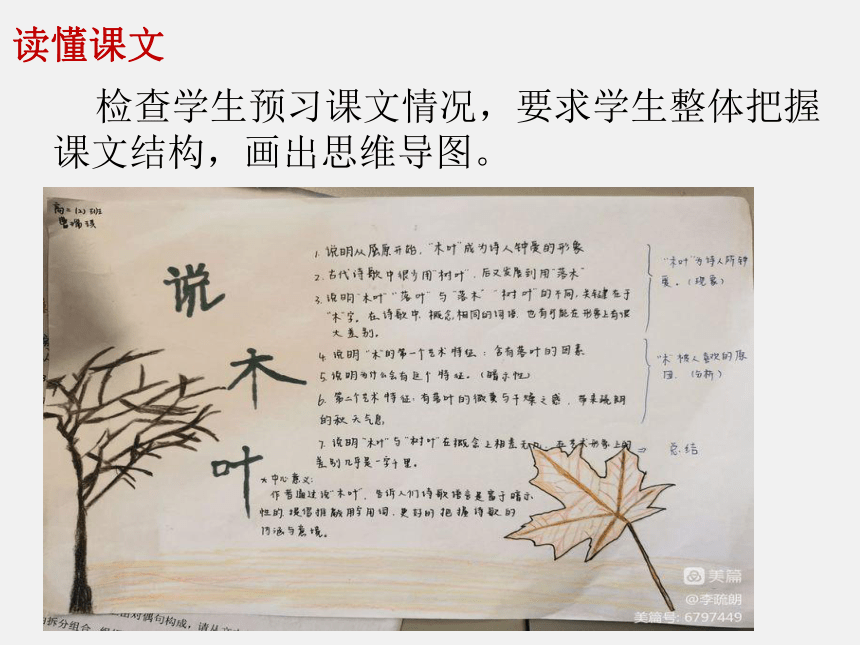 读懂课文
检查学生预习课文情况，要求学生整体把握
课文结构，画出思维导图。
高二(2)班
说
木
叶
1. 说明从屈原开始，"木叶"成为诗人钟爱的形象
2. 古代诗歌中很少用"树叶"，后又发展到用"落木"
3. 说明"木叶""落叶"与"落木""树叶"的不同，关键在于
"木"字。在诗歌中，概念相同的词语，也有可能在形象上有很
大差别。
4. 说明"木"的第一个艺术特征：含有落叶的因素
5. 说明为什么会有这个特征。(暗示性)
6. 第二个艺术特征：有落叶的微黄与干燥之感，带来疏朗
的秋天气息
7. 说明"木叶"与"树叶"在概念上相差无几，在艺术形象上的
差别几乎是一字千里。
"木叶"为诗人所钟
爱。(现象)
"木"被人喜欢的原
因。(分析)
⇒ 总结
*中心意义:
作者通过说"木叶"，告诉人们诗歌语言是富于暗示
性的，提倡推敲用字用词，更好的把握诗歌的
内涵与意境。
出对偶句构成，请从文
由拆分组合
美篇
@李疏朗
美篇号: 6797449